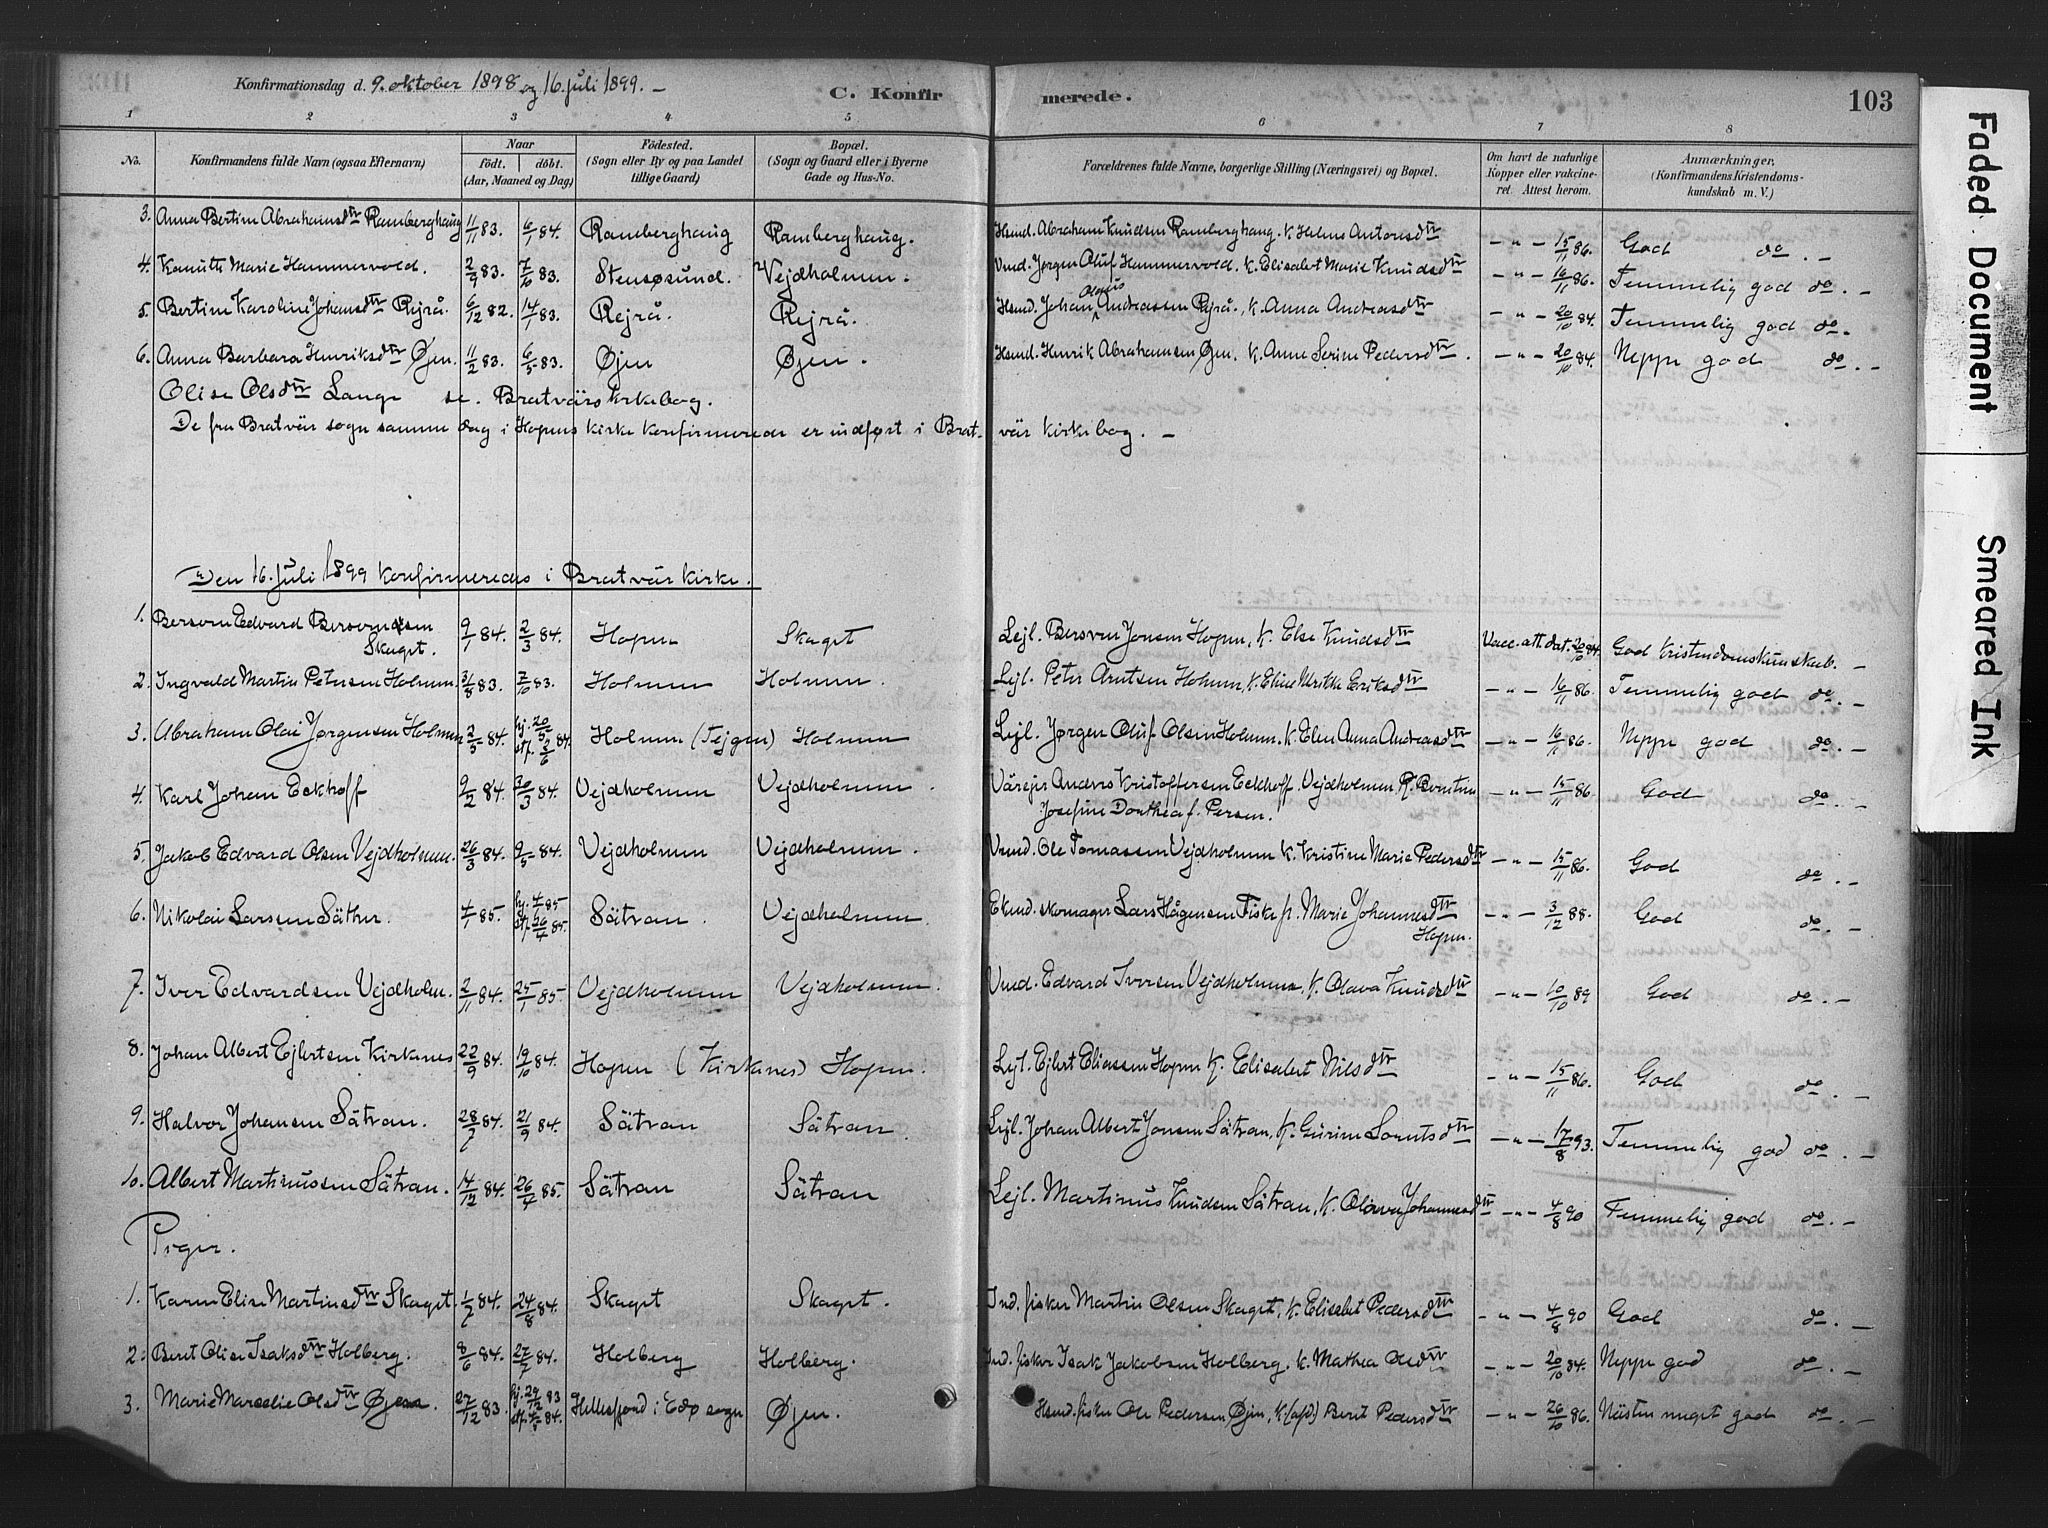 Konfirmationsdag d. 9. oktober 1898 og 16. juli 1899. –
C. Konfir merede. 103
1 2 3 4 5 6 7 8
No. Konfirmandens fulde Navn (ogsaa Efternavn) Naar født. døbt. (Aar, Maaned og Dag) Fødested. (Sogn eller By og paa Landet tillige Gaard) Bopæl. (Sogn og Gaard eller i Byerne Gade og Hus-No. Forældrenes fulde Navne, borgerlige Stilling (Næringsvei) og Bopæl. Om havt de naturlige Kopper eller vakcineret. Attest herom. Anmærkninger. (Konfirmandens Kristendomskundskab m. V.)
3. Anna Bertine Abrahamsdtr Ramberghaug 11/11 83. 6/1 84. Ramberghaug Ramberghaug. Hsmd. Abraham Knudsen Ramberghaug. K. Helene Antonsdtr – " – 15/11 86. God do. –
4. Kanutte Marie Hammervold. 2/9 83. 7/10 83. Stensøsund. Vejdholmen. Vmd. Jørgen Aluf Hammervold. K. Elisabet Marie Knudsdtr – " – 16/11 86. Temmelig god do. –
5. Bertine Karoline Johansdtr Rejrå. 6/12 82. 14/1 83. Rejrå. Rejrå. Hsmd. Johan Olaus Andreassen Rejrå., K. Anna Andreasdtr – " – 20/10 84. Temmelig god do. –
6. Anna Barbara Henriksdtr Øjen. 11/2 83. 6/5 83. Øjen Øjen. Hsmd. Henrik Abrahamsen Øjen. K. Anne Serine Pedersdtr. – " – 20/10 84. Neppe god do. –
Olise Olsdtr Lange se. Bratvärs kirkebog.
De fra Bratvär sogn samme dag i Hopens kirke konfirmerede er indført i Bratvär kirkebog. –
Den 16. juli 1899 konfirmeredes i Bratvär kirke.
1. Bersven Edvard Bersvendsen Skaget. 9/1 84. 2/3 84. Hopen Skaget Lejl. Bersven Jonsen Hopen, K. Else Knudsdtr Vacc. att. dat. 20/10 84. God Kristendomskunskab. –
2. Ingvald Martin Petersen Holmen. 31/8 83. 7/10 83. Holmen Holmen. Lejl. Peter Arntsen Holmen, K. Eline Merikke Eriksdtr – " – 16/11 86. Temmelig god do. –
3. Abraham Olai Jørgensen Holmen 2/5 84. hj. 20/5 stf. 2/6 84. Holmen (Tejgen) Holmen Lejl. Jørgen Oluf Olsen Holmen. K. Elen Anna Andreasdtr – " – 16/11 86. Neppe god do. –
4. Karl Johan Eckhoff 9/2 84. 30/3 84. Vejdholmen Vejdholmen. Värejer Andreas Kristoffersen Eckhoff. Vejdholmen. K. Berntine Josefine Dorthea f. Persen. – " – 15/11 86. God do. –
5. Jakob Edvard Olsen Vejdholmen. 26/3 84. 9/5 84. Vejdholmen Vejdholmen. Vmd. Ole Tomassen Vejdholmen K. Kristine Marie Pedersdtr – " – 15/11 86. God do. –
6. Nikolai Larsen Säther. 4/1 85. hj. 4/1 85 stf. 26/4 85. Sätran. Vejdholmen. Ekmd. skomager Lars Hågensen Fiske p. Marie Johannesdtr Hopen. – " – 3/12 88. God do. –
7. Iver Edvardsen Vejdholm. 2/11 84. 25/1 85. Vejdholmen Vejdholmen. Vmd. Edvard Iversen Vejdholmen, K. Olava Knudsdtr – " – 10/10 89 God do. –
8. Johan Albert Ejlertsen Kirknes 22/9 84. 19/10 84. Hopen (Kirknes) Hopen. Lejl. Ejlert Eliassen Hopen K. Elisabet Nilsdtr – " – 15/11 86. God do. –
9. Halvor Johansen Sätran. 28/7 84. 21/9 84. Sätran Sätran. Lejl. Johan Albert Jonsen Sätran, K. Gurine Lorntsdtr – " – 17/8 93. Temmelig god do. –
10. Albert Martinussen Sätran. 14/12 84. 26/4 85. Sätran Sätran Lejl. Martinus Knudsen Sätran, K. Olava Johannesdtr – " – 4/8 90 Temmelig god do. –
Piger.
1. Karen Elise Martinsdtr Skaget. 1/7 84. 24/8 84. Skaget Skaget. Ind. fisker Martin Olsen Skaget, K. Elisabet Pedersdtr – " – 4/8 90 God do. –
2. Beret Olise Isaksdtr Holberg. 8/6 84. 27/7 84. Holberg Holberg. Ind. fisker Isak Jakobsen Holberg. K. Mathea Olsdtr – " – 20/10 84. Neppe god do. –
3. Marie Marselie Olsdtr Øjen. 27/12 83. hj. 29/12 83 stf. 4/5 84. Hellesfjord i Edø sogn Øjen. Hsmd. fisker Ole Pedersen Øjen, K. (afd.) Beret Pedersdtr – " – 26/10 86. Nästen meget god do. –
Faded Document
Smeared Ink